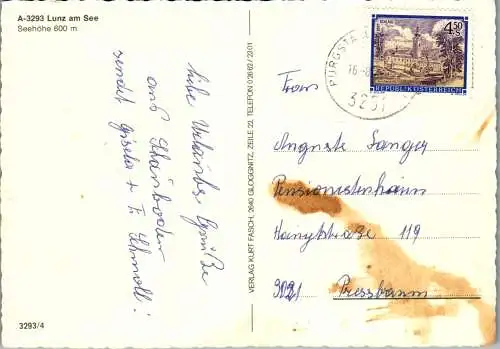 A-3293 Lunz am See
Seehöhe 600 m.
liebe Urlaubs Grüße
aus
sendet Gisela + Fr.
3293/4
VERLAG KURT FASCH, 2640 GLOGGNITZ, ZEILE 22, TELEFON 0 26 62 / 22 01
PURGSTA
16.
3251
4.50
S
REPUBLIK ÖSTERREICH
Frau
Auguste Sanger
Pensionistenheim
Hauptstraße 119
3021 Pressbaum